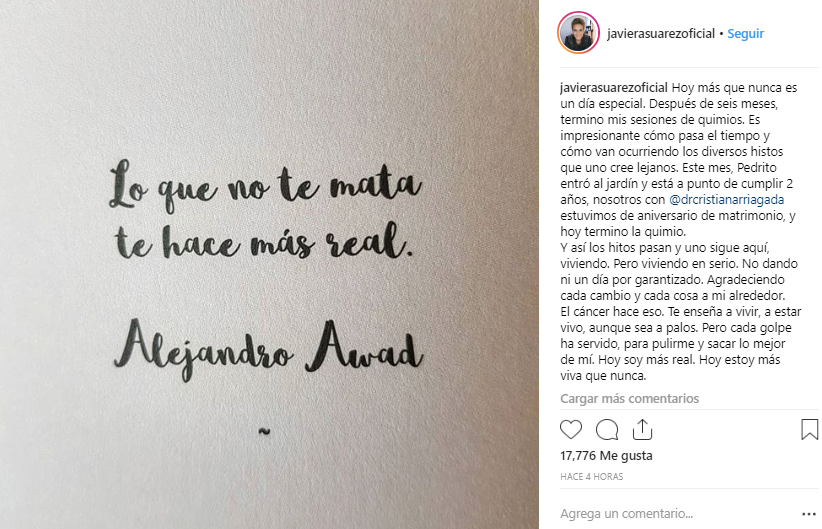 Lo que no te mata
te hace más real.
Alejandro Awad
~
javierasuarezoficial • Seguir
javierasuarezoficial Hoy más que nunca es
un día especial. Después de seis meses,
termino mis sesiones de quimios. Es
impresionante cómo pasa el tiempo y
cómo van ocurriendo los diversos histos
que uno cree lejanos. Este mes, Pedrito
entró al jardín y está a punto de cumplir 2
años, nosotros con @drcristianarriagada
estuvimos de aniversario de matrimonio, y
hoy termino la quimio.
Y así los hitos pasan y uno sigue aquí,
viviendo. Pero viviendo en serio. No dando
ni un día por garantizado. Agradeciendo
cada cambio y cada cosa a mi alrededor.
El cáncer hace eso. Te enseña a vivir, a estar
vivo, aunque sea a palos. Pero cada golpe
ha servido, para pulirme y sacar lo mejor
de mí. Hoy soy más real. Hoy estoy más
viva que nunca.
Cargar más comentarios
17,776 Me gusta
HACE 4 HORAS
Agrega un comentario...